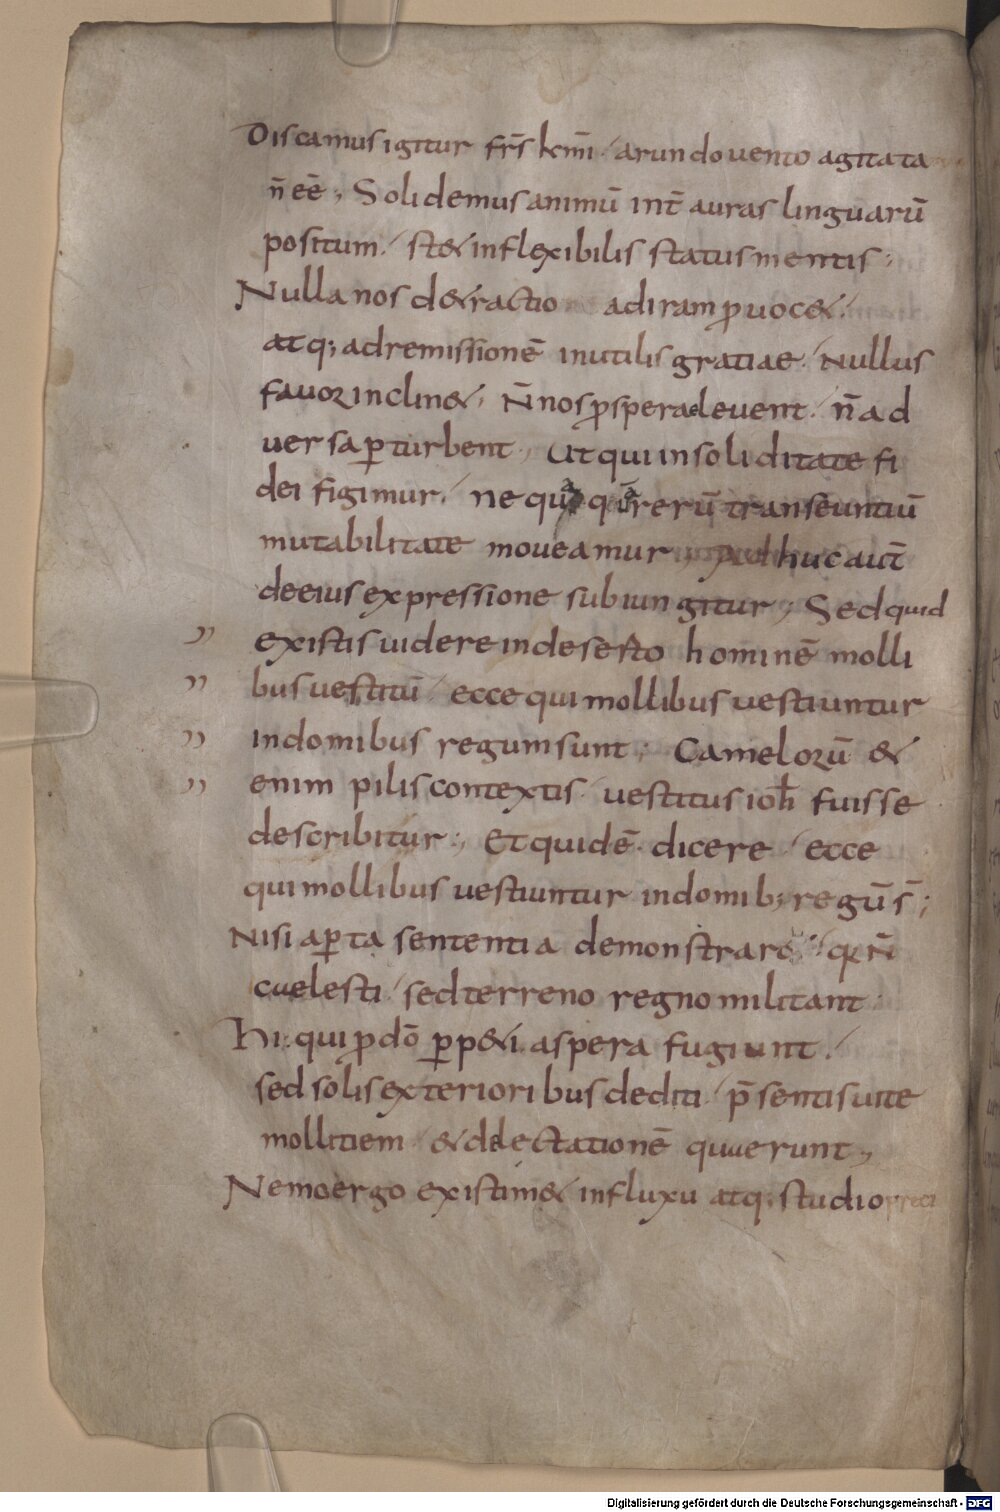 Discamus igitur fr̄s km̄i arundo uento agitata
n̄ eē, Solidemus animū int̄ auras linguarū
positum / st& inflexibilis status mentis;
Nulla nos d&ractio ad iram ꝑuoc&,
atq; ad remissionē inutilis gratiae / Nullus
fauor inclin&, N̄ nos ꝓspera eleuent / n̄ ad
uersa ꝑturbent, Ut qui in soliditate fi
dei figimur / nequaquā rerū transeuntiū
mutabilitate moueamur, Adhuc aut̄
de eius expressione subiungitur, Sed quid
existis uidere in deserto hominē molli
bus uestitū / ecce qui mollibus uestiuntur
in domibus regum sunt; Camelorū &
enim pilis contextis / uestitus ioh̄ fuisse
describitur; Et quidē dicere / ecce
qui mollibus uestiuntur in domib; regū s̄;
Nisi aꝑta sententia demonstrare / qꝛ n̄
caelesti / sed terreno regno militant
Hi qui ꝓ dō ꝑp&i aspera fugiunt /
sed solis exterioribus dediti / p̄sentis uite
mollitiem / & delectationē quaerunt,
Nemo ergo existim& in fluxu atq; studio preci
Digitalisierung gefördert durch die Deutsche Forschungsgemeinschaft - DFG